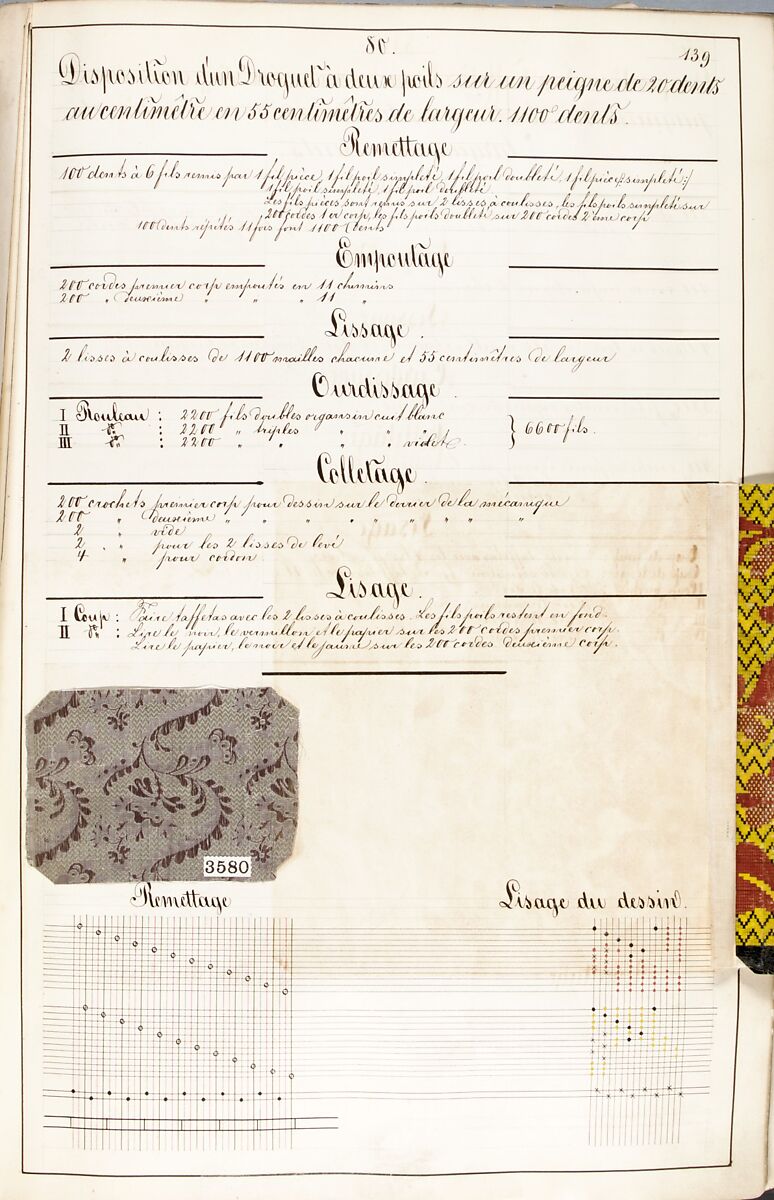 80.
139
Disposition d'un Droguet à deux poils sur un peigne de 20 dents
au centimètre en 55 centimètres de largeur. 1100 dents.
Remettage
100 dents à 6 fils remis par 1 fil pièce, 1 fil poil simpleté, 1 fil poil doubleté, 1 fil pièce simpleté
1 fil poil simpleté, 1 fil poil doubleté
Les fils pièces sont remis sur 2 lisses à coulisses, les fils poils simpleté sur
200 cordes 1er corp, les fils poils doubleté sur 200 cordes 2ème corp
100 dents répétés 11 fois font 1100 dents
Empoutage
200 cordes premier corp empoutés en 11 chemins
200 " deuxième " " " 11 "
Lissage.
2 lisses à coulisses de 1100 mailles chacune et 55 centimètres de largeur
Ourdissage.
I Rouleau : 2200 fils doubles organsin cuit blanc
II do : 2200 " triples " " "
III do : 2200 " " " " violet
} 6600 fils.
Colletage.
200 crochets premier corp pour dessin sur le derrier de la mécanique
200 " deuxième " " " " " " " "
2 " vide
2 " pour les 2 lisses de levé
4 " pour cordon.
Lisage.
I Coup : Faire taffetas avec les 2 lisses à coulisses. Les fils poils restent en fond.
II do : Lire le noir, le vermillon et le papier sur les 200 cordes premier corp.
Lire le papier, le noir et le jaune sur les 200 cordes deuxième corp.
3580
Remettage
Lisage du dessin.